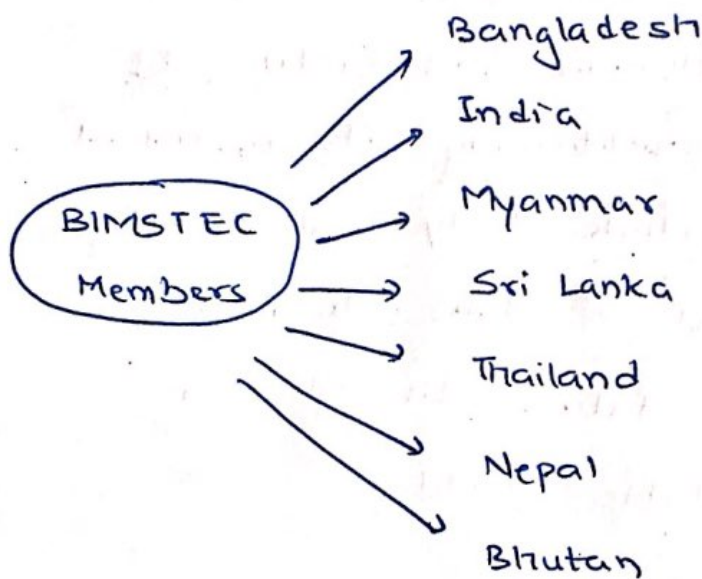 BIMSTEC
Members
Bangladesh
India
Myanmar
Sri Lanka
Thailand
Nepal
Bhutan